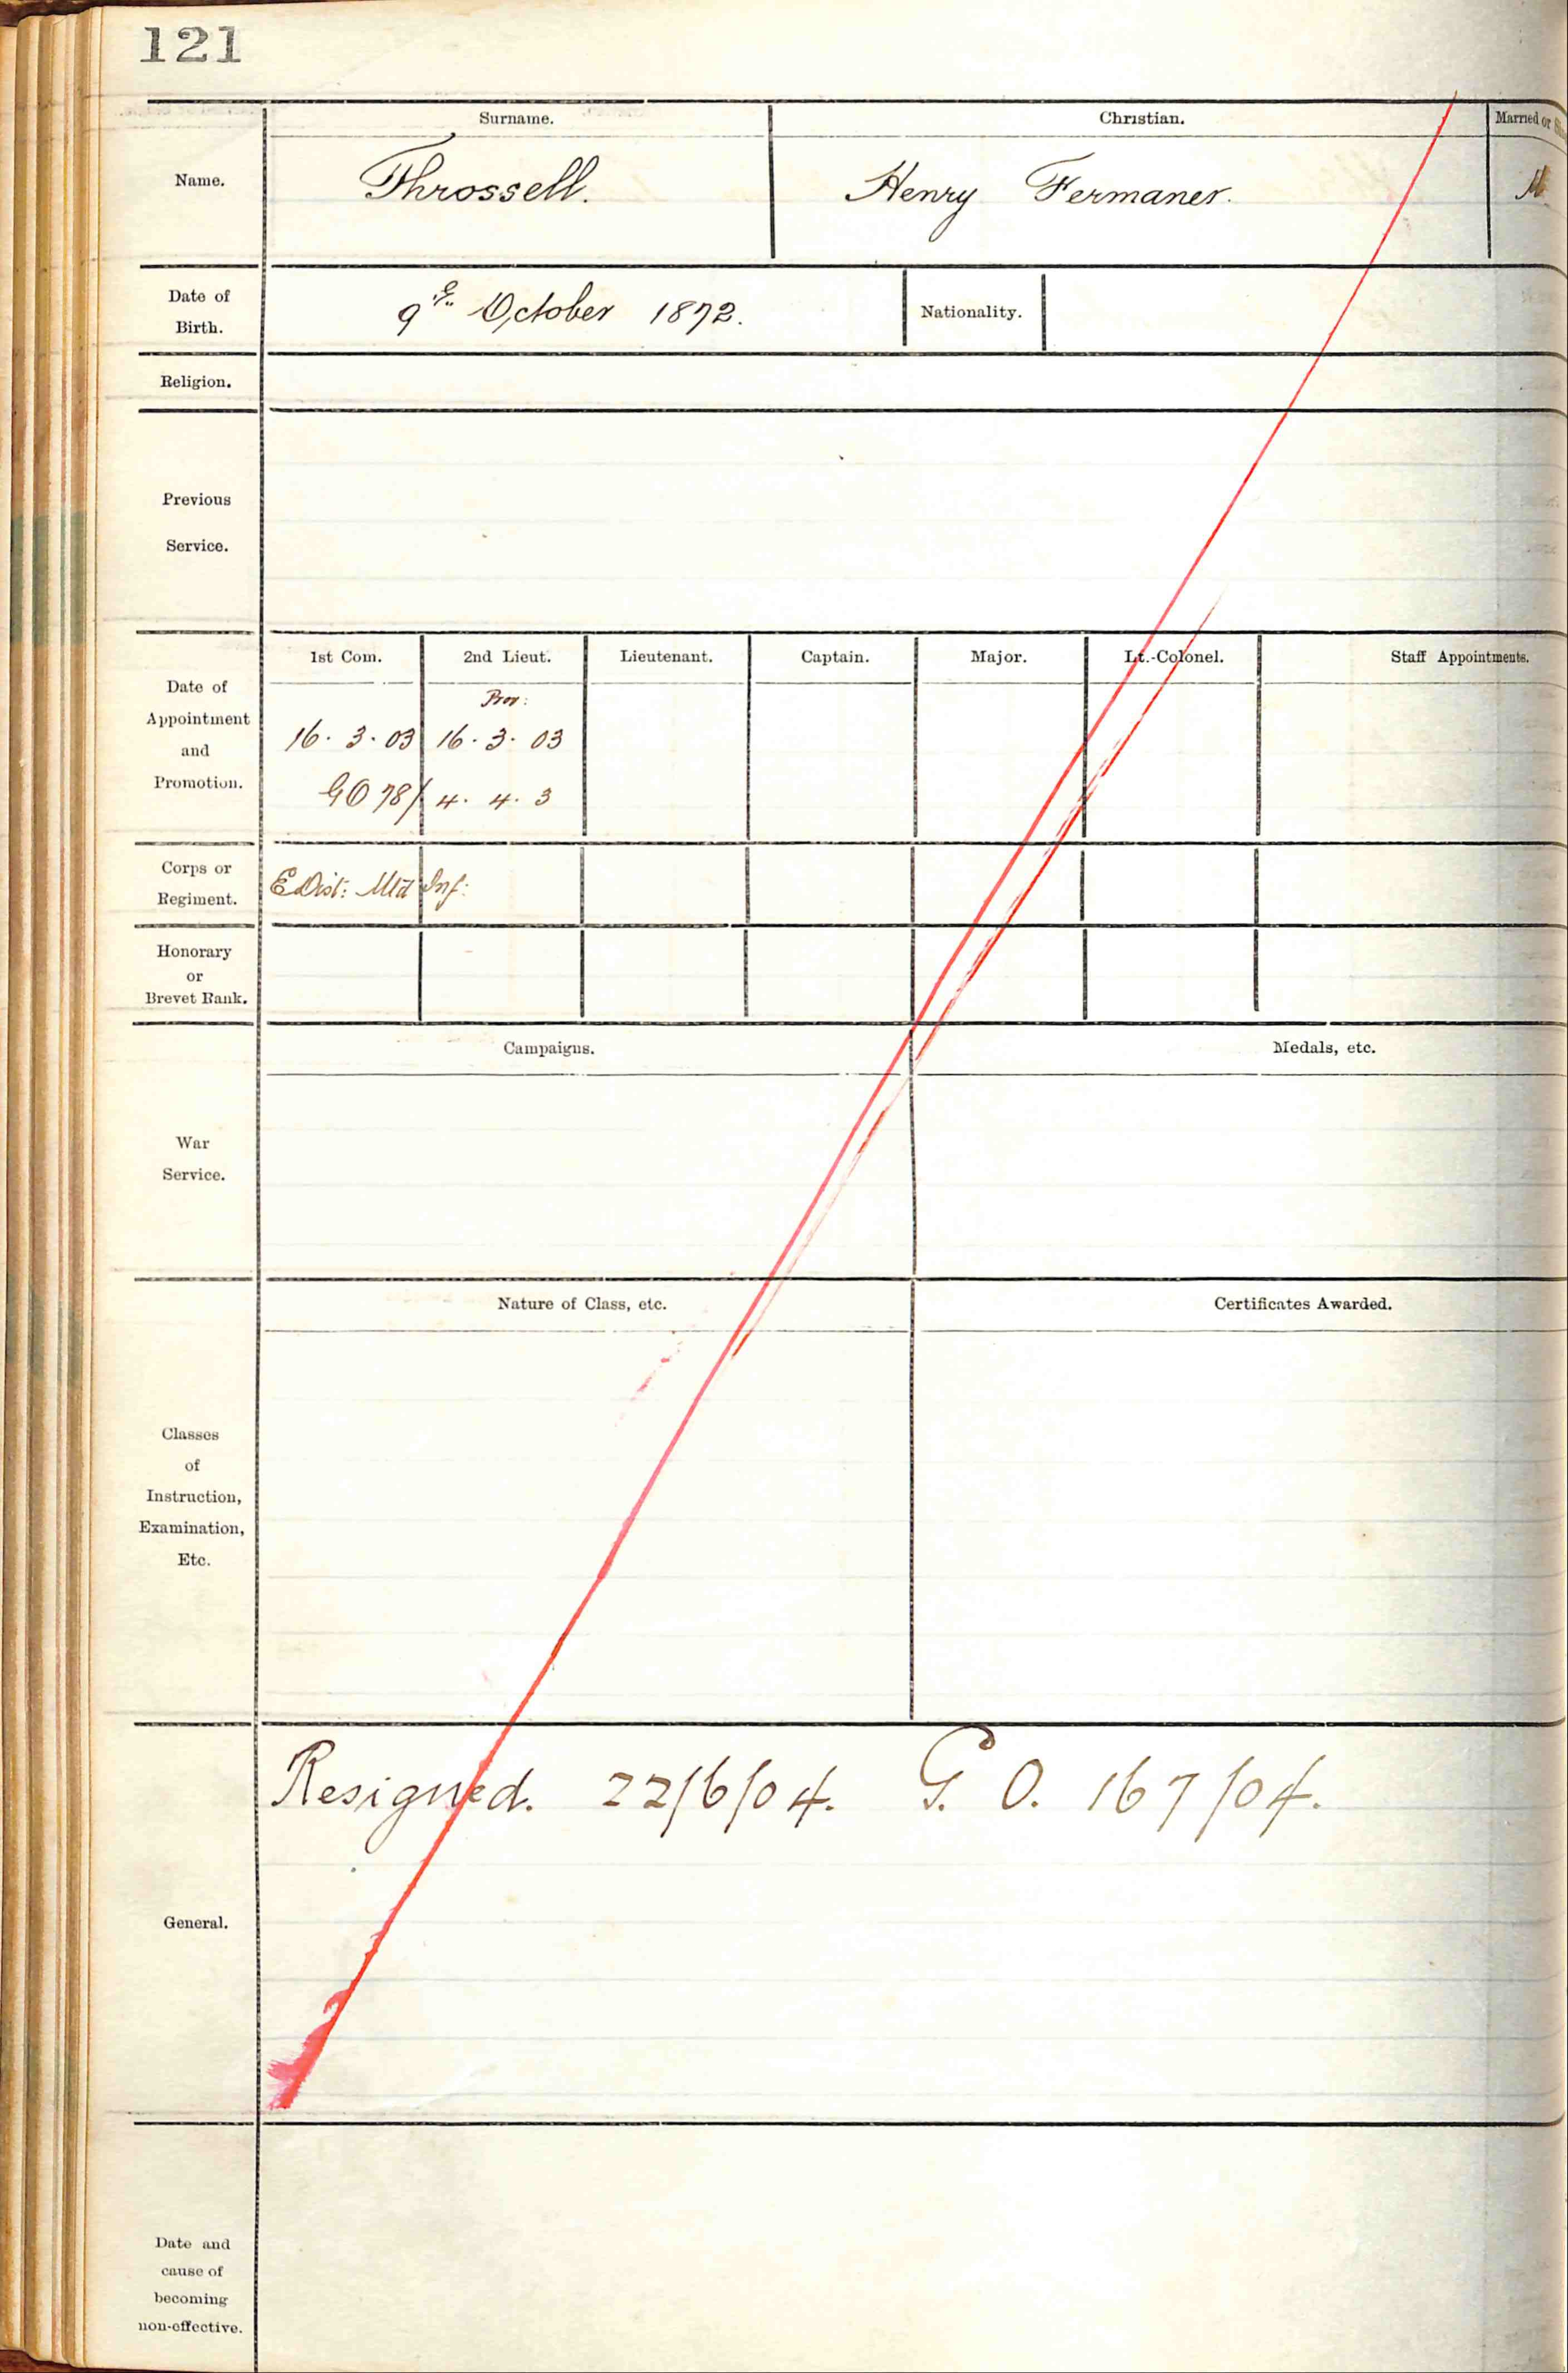 121
Surname. Christian. Married or
Name. Throssell. Henry Fermaner. M
Date of
Birth. 9th October 1872. Nationality.
Religion.
Previous
Service.
1st Com. 2nd Lieut. Lieutenant. Captain. Major. Lt.-Colonel. Staff Appointments.
Date of
Appointment
and
Promotion.
Prov:
16. 3. 03 16. 3. 03
GO 78/ 4. 4. 3
Corps or
Regiment. E Dist: Mtd Inf:
Honorary
or
Brevet Rank.
Campaigns. Medals, etc.
War
Service.
Nature of Class, etc. Certificates Awarded.
Classes
of
Instruction,
Examination,
Etc.
Resigned. 22/6/04. G. O. 167/04.
General.
Date and
cause of
becoming
non-effective.